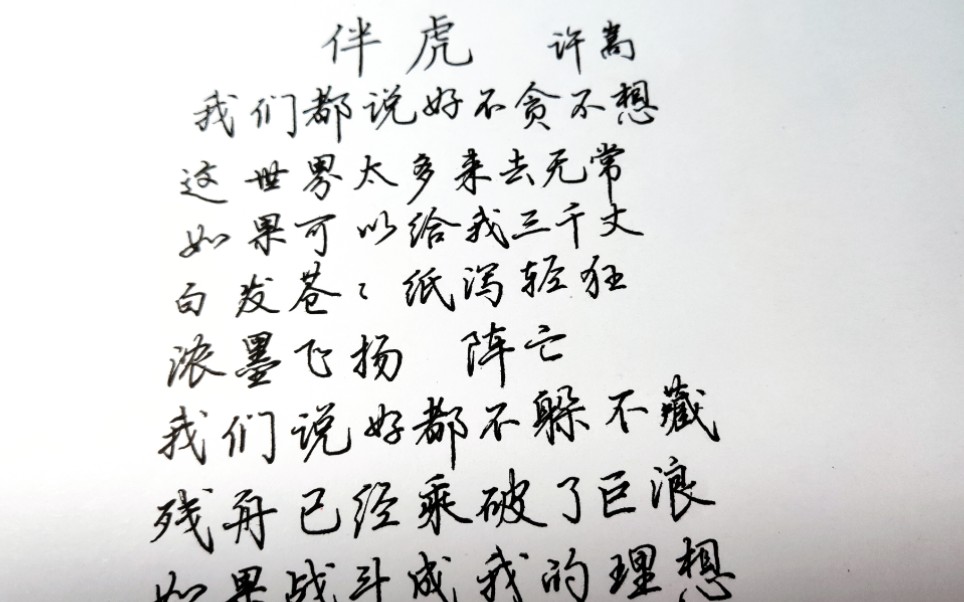 伴虎 许嵩
我们都说好不贪不想
这世界太多来去无常
如果可以给我三千丈
白发苍々纸泻轻狂
浓墨飞扬 阵亡
我们说好都不躲不藏
残舟已经乘破了巨浪
如果战斗成我的理想